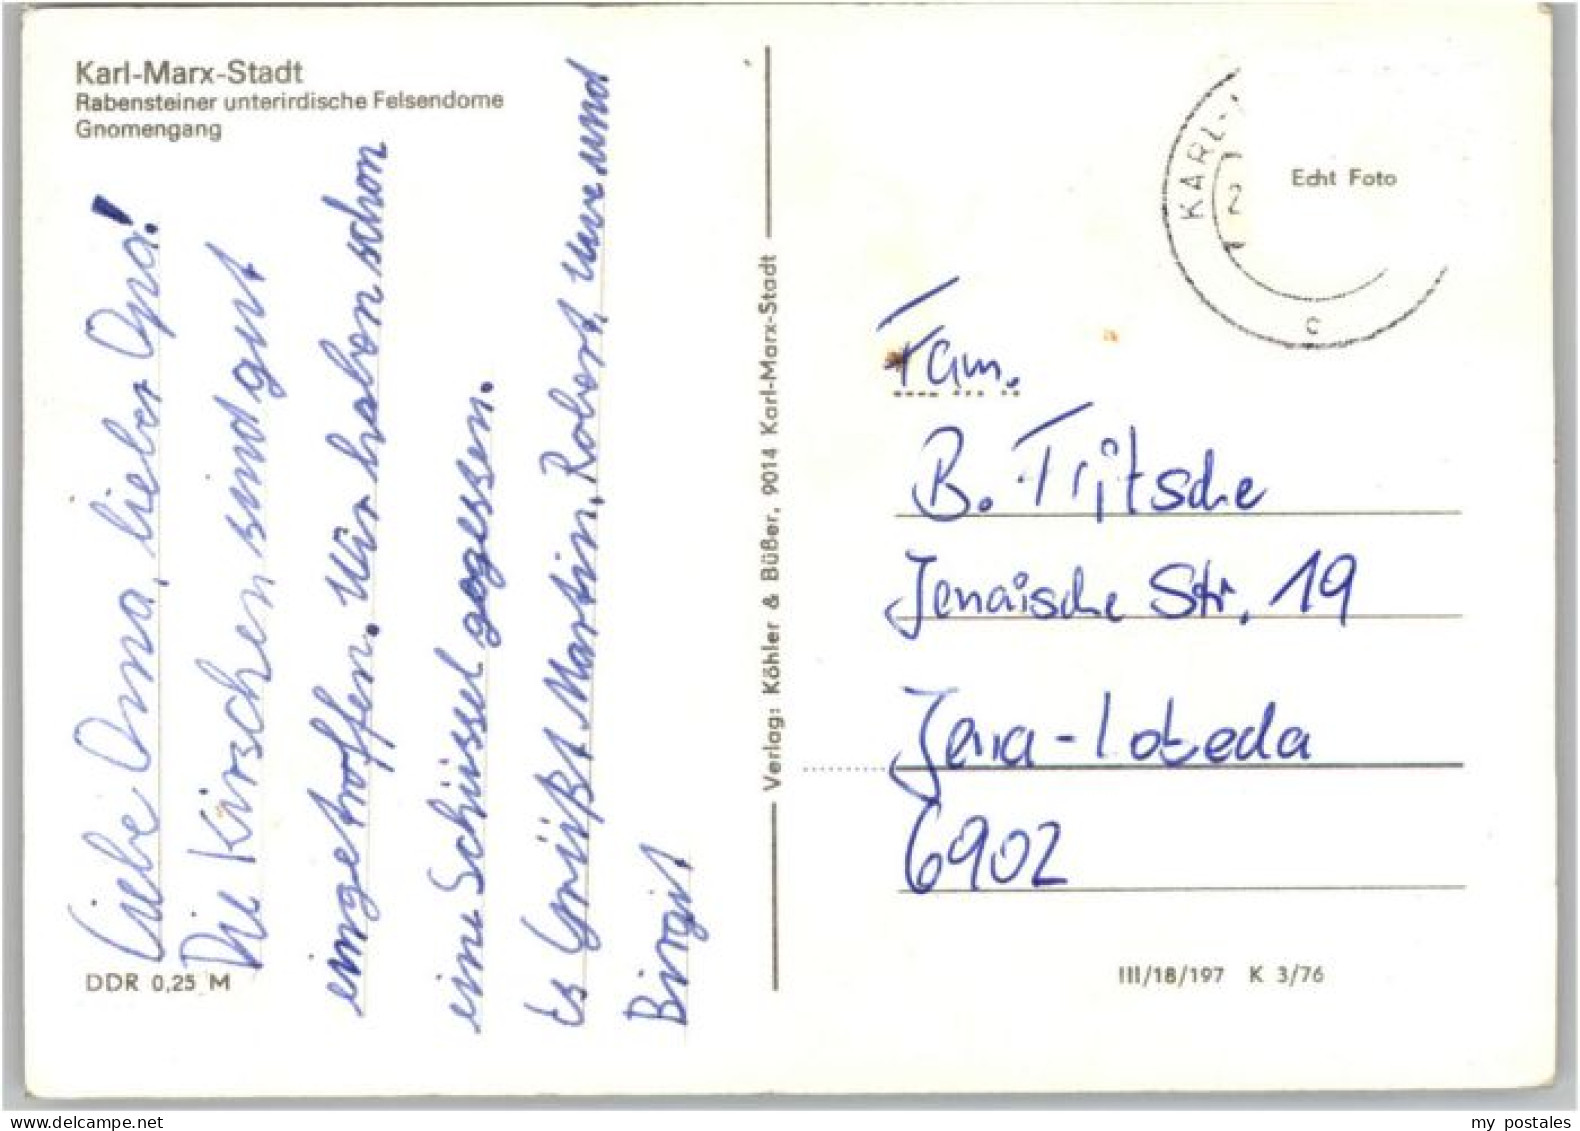 Karl-Marx-Stadt
Rabensteiner unterirdische Felsendome
Gnomengang
Liebe Oma, lieber Opa!
Die Kirschen sind gut
eingetroffen. Wir haben schon
eine Schüssel gegessen.
Es grüßt Martin, Robert, Uwe und
Birgit
DDR 0,25 M
Verlag: Köhler & Büßer, 9014 Karl-Marx-Stadt
KARL-
2
c
Echt Foto
Fam.
B. Fritsche
Jenaische Str. 19
Jena-Lobeda
6902
III/18/197 K 3/76
my postales